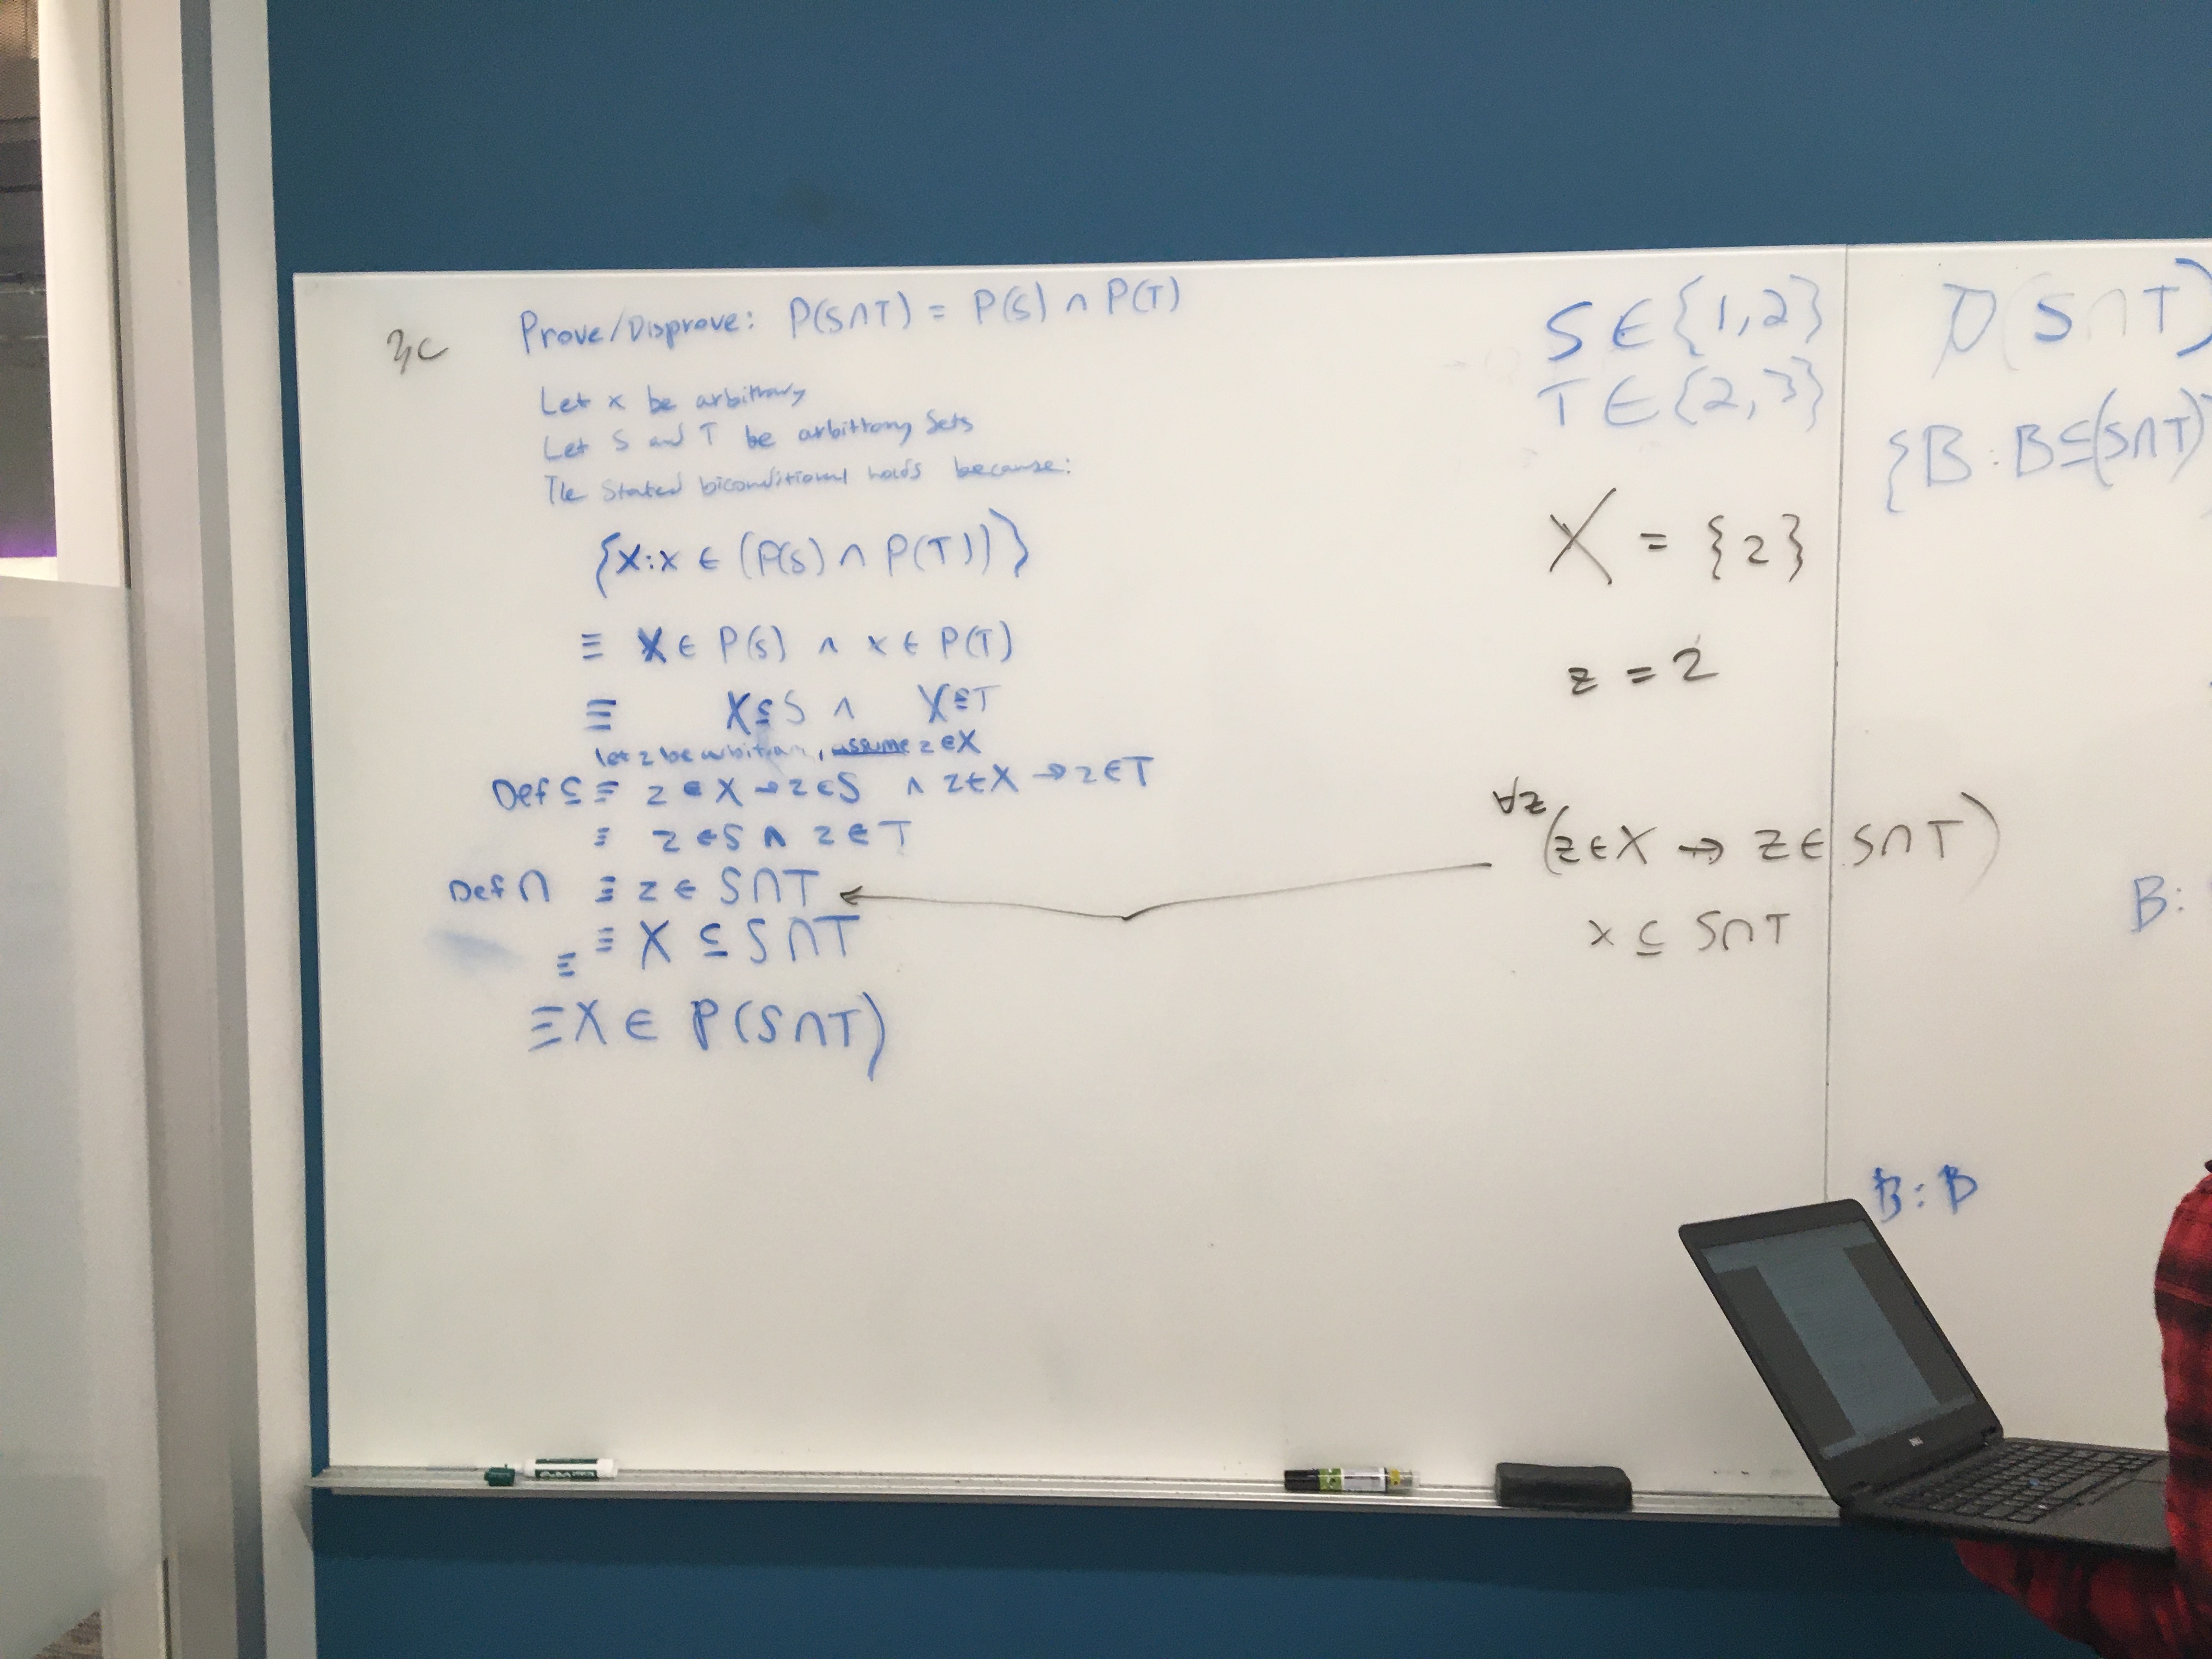 3c
Prove/Disprove: P(S∩T) = P(S) ∩ P(T)
Let x be arbitrary
Let S and T be arbitrary Sets
The Stated biconditional holds because:
{X:x ∈ (P(S) ∩ P(T))}
≡ X ∈ P(S) ∧ x ∈ P(T)
≡ X⊆S ∧ X⊆T
let z be arbitrary, assume z∈X
Def ⊆ ≡ z ∈ X → z∈S ∧ z∈X → z∈T
≡ z ∈ S ∧ z ∈ T
Def ∩ ≡ z ∈ S∩T
≡ X ⊆ S∩T
≡
≡ X ∈ P(S∩T)
S ∈ {1,2}
T ∈ {2,3}
X = {2}
z = 2
∀z (z∈X → z∈ S∩T)
x ⊆ S∩T
P(S∩T)
{B : B⊆(S∩T)
B:
B:B
DELL